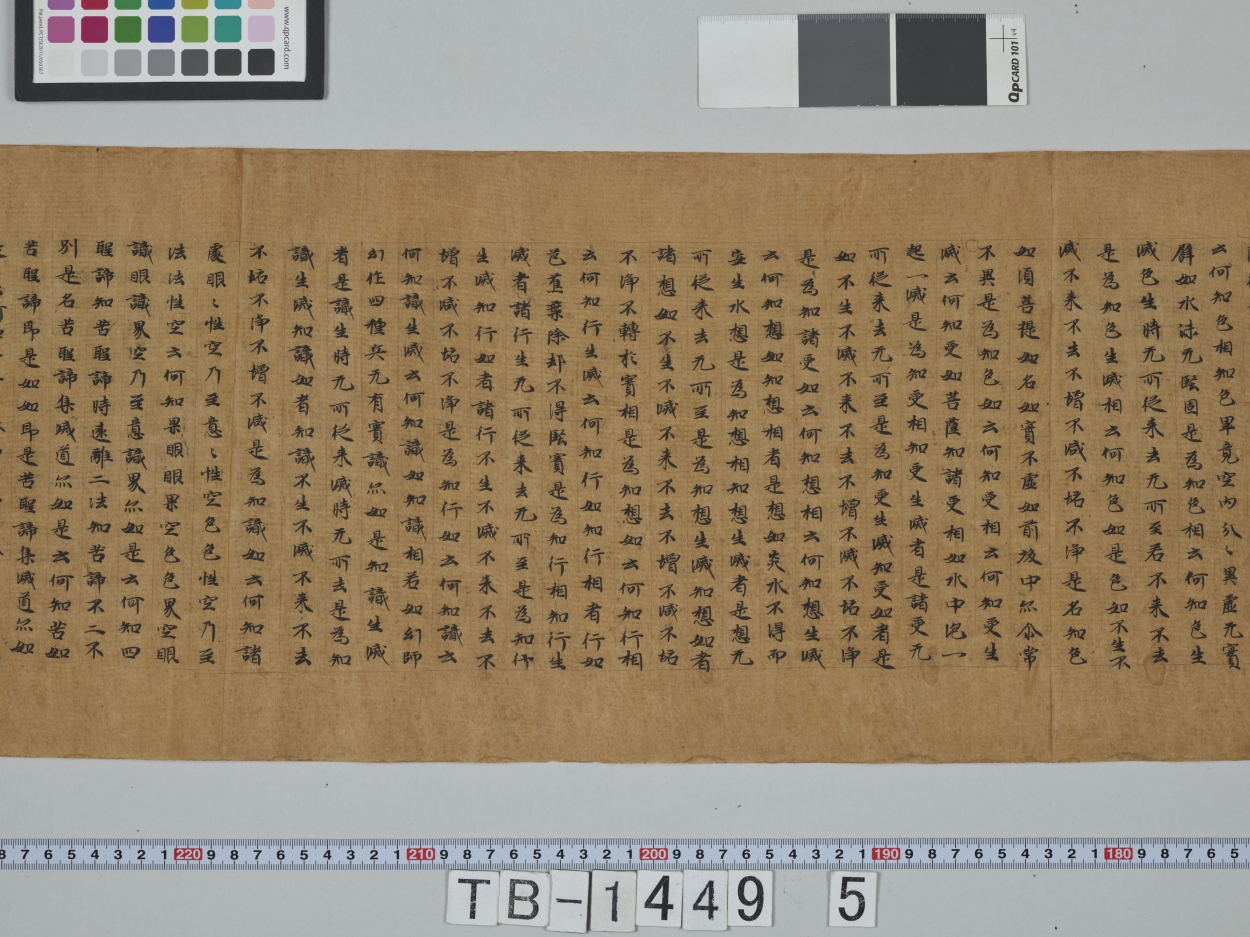 云何知色相知色畢竟空内分〻異虛无實
辟如水沫无堅固是為知色相云何知色生
滅色生時无所從来去无所至若不来不去
是為知色生滅相云何知色如是色如不生不
滅不来不去不增不減不垢不淨是名知色
如須菩提如名如實不虛如前後中亦尒常
不異是為知色如云何知受相云何知受生
滅云何知受如菩薩知諸受相如水中泡一
起一滅是為知受相知受生滅者是諸受无
所從来去无所至是為知受生滅知受如者是
如不生不滅不来不去不增不減不垢不淨
是為知諸受如云何知想相云何知想生滅
云何知想如知想相者是想如炎水不得而
妄生水想是為知想相知想生滅者是想无
所從来去无所至是為知想生滅知想如者
諸想如不生不滅不来不去不增不減不垢
不淨不轉於實相是為知想如云何知行相
云何知行生滅云何知行如知行相者行如
芭蕉葉除却不得堅實是為知行相知行生
滅者諸行生无所從来去无所至是為知行
生滅知行如者諸行不生不滅不来不去不
增不減不垢不淨是為知行如云何知識云
何知識生滅云何知識如知識相若如幻師
幻作四種兵无有實識亦如是知識生滅
者是識生時无所從来滅時无所去是為知
識生滅知識如者知識不生不滅不来不去
不垢不淨不增不減是為知識如云何知諸
處眼〻性空乃至意〻性空色色性空乃至
法法性空云何知界眼眼界空色色界空眼
識眼識界空乃至意識界亦如是云何知四
聖諦知苦聖諦時遠離二法知苦諦不二不
別是名苦聖諦集滅道亦如是云何知苦如
苦聖諦即是如如即是苦聖諦集滅道亦如
www.qpcard.com
QPCARD 101 v4
8 7 6 5 4 3 2 1 220 9 8 7 6 5 4 3 2 1 210 9 8 7 6 5 4 3 2 1 200 9 8 7 6 5 4 3 2 1 190 9 8 7 6 5 4 3 2 1 180 9 8 7 6 5
TB-1449 5